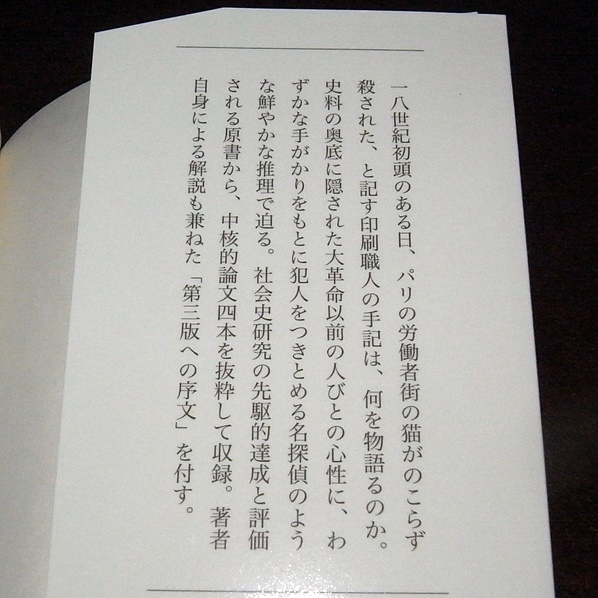 一八世紀初頭のある日、パリの労働者街の猫がのこらず
殺された、と記す印刷職人の手記は、何を物語るのか。
史料の奥底に隠された大革命以前の人びとの心性に、わ
ずかな手がかりをもとに犯人をつきとめる名探偵のよう
な鮮やかな推理で迫る。社会史研究の先駆的達成と評価
される原書から、中核的論文四本を抜粋して収録。著者
自身による解説も兼ねた「第三版への序文」を付す。